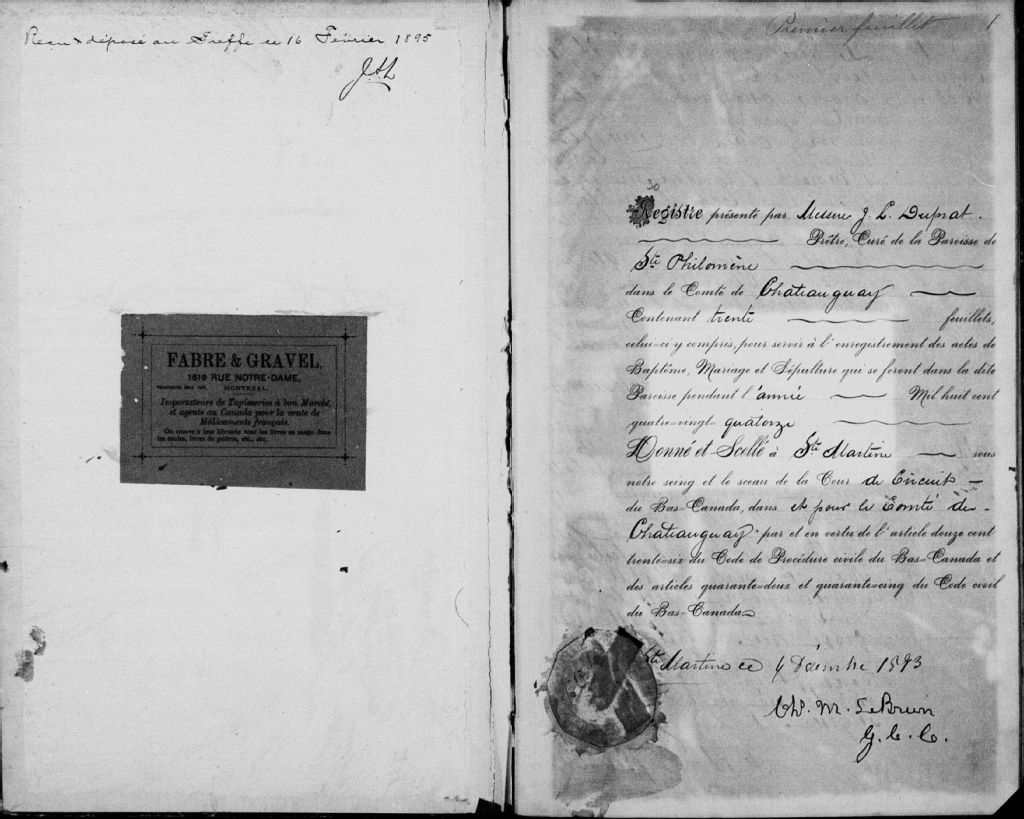 Reçu & déposé au Greffe ce 16 Février 1895
FABRE & GRAVEL,
1619 RUE NOTRE-DAME,
MONTREAL.
Importateurs de Tapisseries à bon Marché,
et agents au Canada pour la vente de
Médicaments français.
On trouve à leur librairie tous les livres en usage dans
les écoles, livres de prières, etc., etc.
Premier feuillet 1
30
Registre présenté par Messire J. L. Duprat.
Prêtre, Curé de la Paroisse de
Ste Philomène
dans le Comté de Chateauguay
Contenant trente feuillets,
celui=ci y compris, pour servir à l'enregistrement des actes de
Baptême, Mariage et Sépulture qui se feront dans la dite
Paroisse pendant l'année Mil huit cent
quatre=vingt= quatorze
Donné et Scellé à Ste Martine sous
notre seing et le sceau de la Cour de Circuit
du Bas=Canada, dans et pour le Comté de
Chateauguay par et en vertu de l'article douze cent
trente=six du Code de Procédure civile du Bas=Canada et
des articles quarante=deux et quarante=cinq du Code civil
du Bas=Canada
Ste Martine ce 4 Décembre 1893
Chs. M. LeBrun
G. C. C.